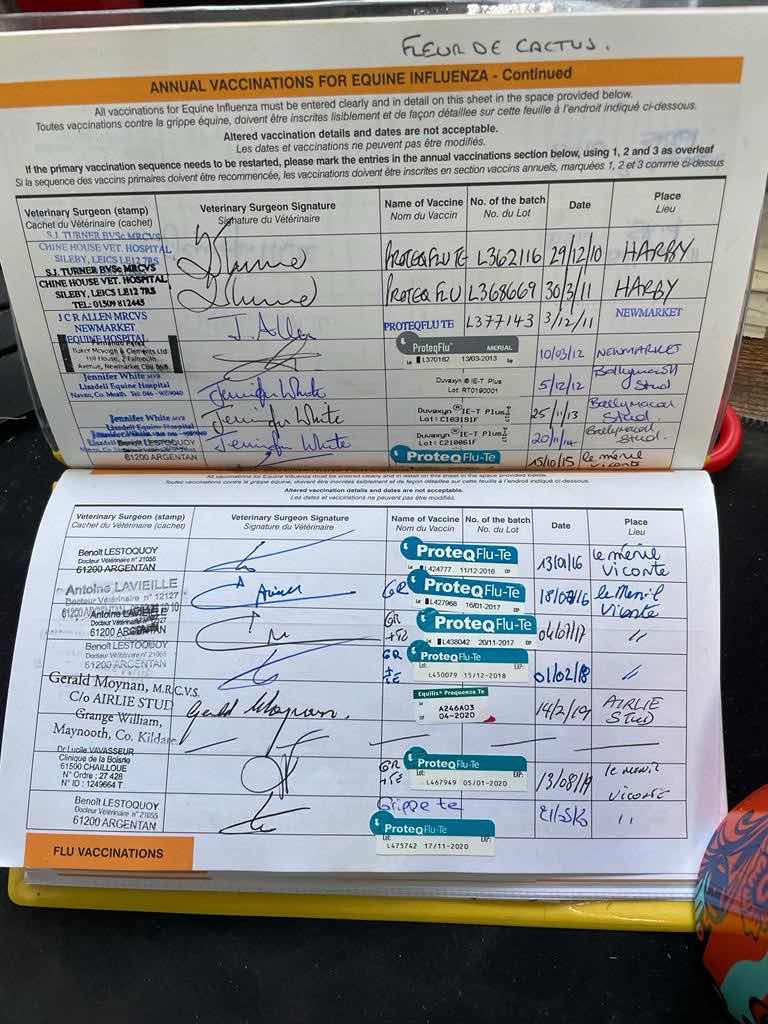 FLEUR DE CACTUS.
ANNUAL VACCINATIONS FOR EQUINE INFLUENZA - Continued
All vaccinations for Equine Influenza must be entered clearly and in detail on this sheet in the space provided below.
Toutes vaccinations contre la grippe équine, doivent être inscrites lisiblement et de façon détaillée sur cette feuille à l'endroit indiqué ci-dessous.
Altered vaccination details and dates are not acceptable.
Les dates et vaccinations ne peuvent pas être modifiés.
If the primary vaccination sequence needs to be restarted, please mark the entries in the annual vaccinations section below, using 1, 2 and 3 as overleaf
Si la sequence des vaccins primaires doivent être recomencée, les vaccinations doivent être inscrites en section vaccins annuels, marquées 1, 2 et 3 comme ci-dessus
Veterinary Surgeon (stamp) Veterinary Surgeon Signature Name of Vaccine No. of the batch Date Place
Cachet du Vétérinaire (cachet) Signature du Vétérinaire Nom du Vaccin No. du Lot Lieu
S.J. TURNER BVSc MRCVS
CHINE HOUSE VET. HOSPITAL
SILEBY, LEICS LE12 7RS
PROTEQFLU TE L362116 29/12/10 HARBY
S.J. TURNER BVSc MRCVS
CHINE HOUSE VET. HOSPITAL
SILEBY, LEICS LE12 7RS
TEL: 01509 812445
PROTEQ FLU L368669 30/3/11 HARBY
J C R ALLEN MRCVS
NEWMARKET
EQUINE HOSPITAL
J. Allen PROTEQFLU TE L377143 3/12/11 NEWMARKET
Fernando Perez
Hill House, 2 Falmouth
Avenue, Newmarket
ProteqFlu MERIAL
L370162 13/03/2013
10/03/12 NEWMARKET
Jennifer White MVB
Lisadell Equine Hospital
Navan, Co. Meath
Jennifer White Duvaxyn IE-T Plus
Lot: RT0190001
5/12/12 Ballymacoll Stud
Jennifer White MVB
Lisadell Equine Hospital
Jennifer White Duvaxyn IE-T Plus
Lot: C103191F
25/11/13 Ballymacoll Stud
Jennifer White Duvaxyn IE-T Plus
Lot: C210061F
20/11/14 Ballymacoll Stud.
LESTOQUOY
61200 ARGENTAN
ProteqFlu-Te 15/10/15 le ménil vicomte
All vaccinations for Equine Influenza must be entered clearly and in detail on this sheet in the space provided below.
Toutes vaccinations contre la grippe équine, doivent être inscrites lisiblement et de façon détaillée sur cette feuille à l'endroit indiqué ci-dessous.
Altered vaccination details and dates are not acceptable.
Les dates et vaccinations ne peuvent pas être modifiés.
Veterinary Surgeon (stamp) Veterinary Surgeon Signature Name of Vaccine No. of the batch Date Place
Cachet du Vétérinaire (cachet) Signature du Vétérinaire Nom du Vaccin No. du Lot Lieu
Benoît LESTOQUOY
Docteur Vétérinaire n° 21055
61200 ARGENTAN
ProteqFlu-Te
L424777 11/12/2016
13/01/16 le ménil vicomte
Antoine LAVIEILLE
Docteur Vétérinaire n° 12127
61200 ARGENTAN
GR ProteqFlu-Te
L427968 16/01/2017
le Menil Vicomte
Antoine LAVIEILLE
61200 ARGENTAN
GR ProteqFlu-Te
L438042 20/11/2017
04/07/17 "
Benoît LESTOQUOY
Docteur Vétérinaire n° 21055
61200 ARGENTAN
GR + TE ProteqFlu-Te
Lot: L450079 15/12/2018 EXP:
01/02/18 "
Gerald Moynan, M.R.C.V.S.
C/o AIRLIE STUD
Grange William,
Maynooth, Co. Kildare
Gerald Moynan. Equilis Prequenza Te
A246A03
04-2020
14/2/19 AIRLIE STUD
Dr Lucile VAVASSEUR
Clinique de la Boisrie
61500 CHAILLOUE
N° Ordre : 27 428
N° ID : 1249664 T
GR + TE ProteqFlu-Te
Lot: L467949 05/01/2020 EXP:
13/08/19 le menil vicomte
Benoît LESTOQUOY
Docteur Vétérinaire n° 21055
61200 ARGENTAN
Grippe te
ProteqFlu-Te
Lot: L475742 17/11/2020 EXP:
"
FLU VACCINATIONS